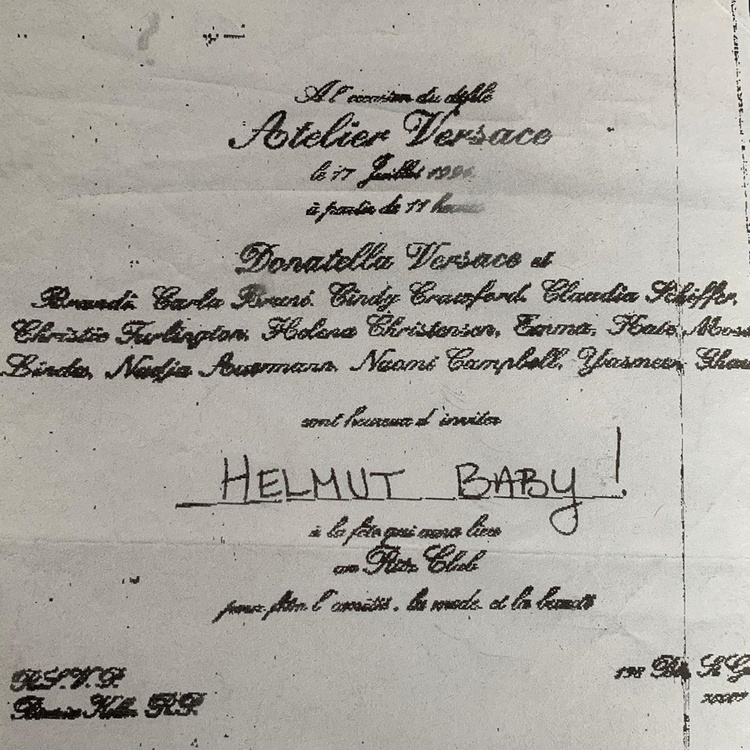 A l'occasion du défilé
Atelier Versace
le 17 Juillet
à partir de 11 heures
Donatella Versace et
Brandi, Carla Bruni, Cindy Crawford, Claudia Schiffer,
Christie Turlington, Helena Christensen, Emma, Kate Moss
Linda, Nadja Auermann, Naomi Campbell, Yasmeen
sont heureux d'inviter
HELMUT BABY!
à la fête qui aura lieu
au Ritz Club
pour fêter l'amitié, la mode et la beauté
R.S.V.P.
R.P.
198 St G